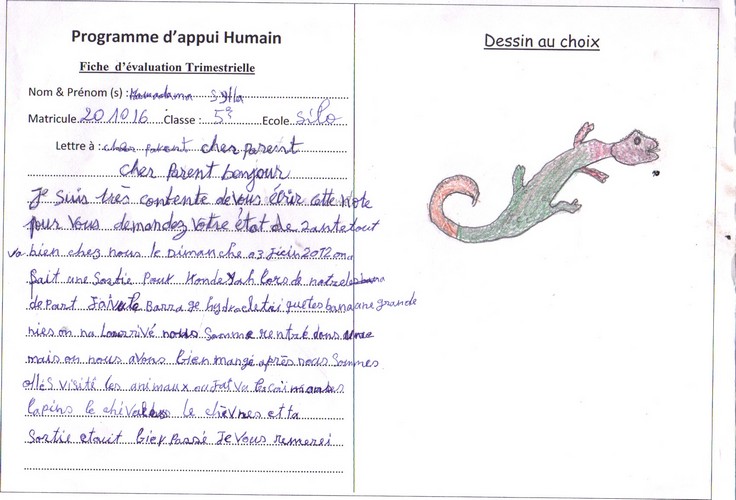 Programme d'appui Humain
Fiche d'évaluation Trimestrielle
Nom & Prénom (s) : Mamadama Sylla
Matricule 201016 Classe : 5e Ecole Silo
Lettre à : cher parent cher parent
cher Parent bonjour
Je suis très contente de vous écrir cette note
pour vous demandez votre état de sante tout
va bien chez nous le Dimanche 03 Juin 2012 on a
fait une Sortie Pour Lors de notre
de Part J'ai vu le Barrage grande
on na arrivé nous Somme rentré dans une
mais on nous avons bien mangé après nous Sommes
allés visité les animaux ou J'ai vu
lapins le cheval le chèvres et ta
Sortie etait bien Passé Je vous remerci
Dessin au choix